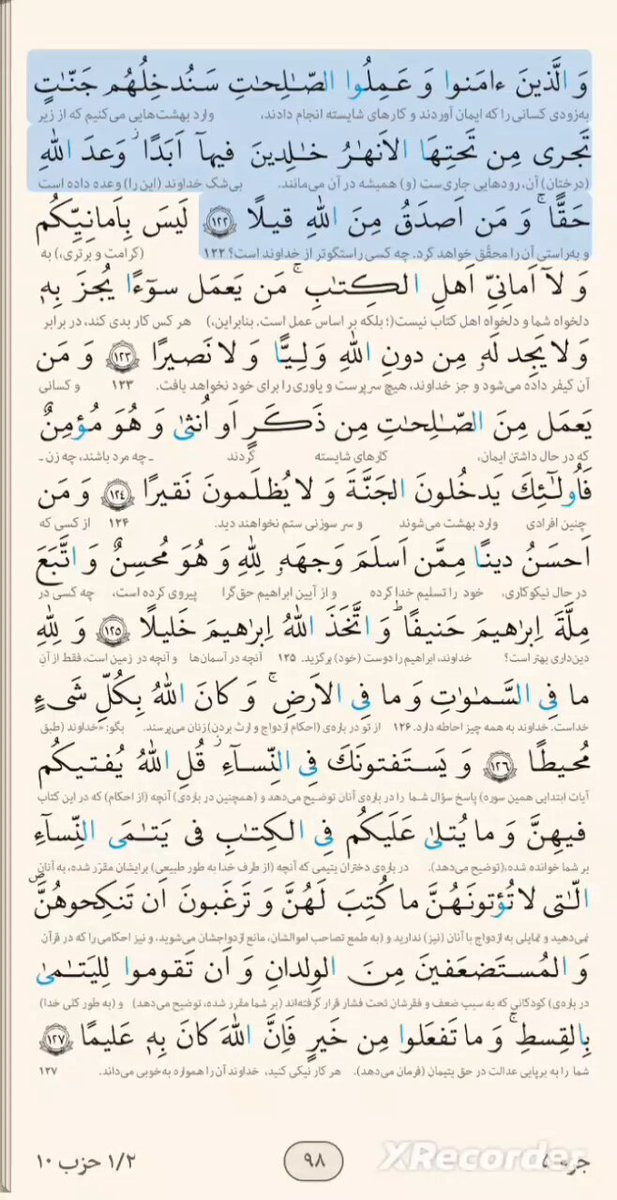 وَ الَّذینَ ءامَنوا وَ عَمِلُوا الصّالِحاتِ سَنُدخِلُهُم جَنّاتٍ
به‌زودی کسانی را که ایمان آوردند و کارهای شایسته انجام دادند، وارد بهشت‌هایی می‌کنیم که از زیر
تَجری مِن تَحتِهَا الاَنهارُ خالِدینَ فیهآ اَبَدًا ۖ وَعدَ اللهِ
(درختان) آن، رودهایی جاری‌ست (و) همیشه در آن می‌مانند. بی‌شک خداوند (این را) وعده داده است
حَقًّا ۚ وَ مَن اَصدَقُ مِنَ اللهِ قیلًا ﴿۱۲۲﴾ لَیسَ بِاَمانِیِّکُم
و به‌راستی آن را محقّق خواهد کرد. چه کسی راستگوتر از خداوند است؟ ۱۲۲ (کرامت و برتری،) به
وَ لآ اَمانِیِّ اَهلِ الکِتابِ ۗ مَن یَعمَل سوٓءًا یُجزَ بِهٖ
دلخواه شما و دلخواه اهل کتاب نیست(؛ بلکه بر اساس عمل است. بنابراین،) هر کس کار بدی کند، در برابر
وَ لا یَجِد لَهٗ مِن دونِ اللهِ وَلِیًّا وَ لا نَصیرًا ﴿۱۲۳﴾ وَ مَن
آن کیفر داده می‌شود و جز خداوند، هیچ سرپرست و یاوری را برای خود نخواهد یافت. ۱۲۳ و کسانی
یَعمَل مِنَ الصّالِحاتِ مِن ذَکَرٍ اَو اُنثىٰ وَ هُوَ مُؤمِنٌ
که در حال داشتن ایمان، کارهای شایسته گردند ـ چه مرد باشند، چه زن ـ
فَاُولٰٓئِكَ یَدخُلونَ الجَنَّةَ وَ لا یُظلَمونَ نَقیرًا ﴿۱۲۴﴾ وَ مَن
چنین افرادی وارد بهشت می‌شوند و سر سوزنی ستم نخواهند دید. ۱۲۴ از کسی که
اَحسَنُ دینًا مِمَّن اَسلَمَ وَجهَهٗ لِلّٰهِ وَ هُوَ مُحسِنٌ وَ اتَّبَعَ
در حال نیکوکاری، خود را تسلیم خدا کرده و از آیین ابراهیم حق‌گرا پیروی کرده است، چه کسی در
مِلَّةَ اِبراهیمَ حَنیفًا ۗ وَ اتَّخَذَ اللهُ اِبراهیمَ خَلیلًا ﴿۱۲۵﴾ وَ لِلّٰهِ
دین‌داری بهتر است؟ خداوند، ابراهیم را دوست (خود) برگزید. ۱۲۵ آنچه در آسمان‌ها و آنچه در زمین است، فقط از آنِ
ما فِی السَّماواتِ وَ ما فِی الاَرضِ ۚ وَ کانَ اللهُ بِکُلِّ شَیءٍ
خداست. خداوند به همه چیز احاطه دارد. ۱۲۶ از تو در باره‌ی (احکام ازدواج و ارث بردن) زنان می‌پرسند. بگو: «خداوند (طبق
مُحیطًا ﴿۱۲۶﴾ وَ یَستَفتونَكَ فِی النِّسآءِ ۖ قُلِ اللهُ یُفتیکُم
آیات ابتدایی همین سوره) پاسخ سؤال شما را در باره‌ی آنان توضیح می‌دهد و (همچنین در باره‌ی) آنچه (از احکام) که در این کتاب
فیهِنَّ وَ ما یُتلىٰ عَلَیکُم فِی الکِتابِ فی یَتامَی النِّسآءِ
بر شما خوانده شده،(توضیح می‌دهد). در باره‌ی دختران یتیمی که آنچه (از طرف خدا به طور طبیعی) برایشان مقرّر شده، به آنان
الّاتی لا تُؤتونَهُنَّ ما کُتِبَ لَهُنَّ وَ تَرغَبونَ اَن تَنکِحوهُنَّ
نمی‌دهید و تمایلی به ازدواج با آنان (نیز) ندارید و (به طمع تصاحب اموالشان، مانع ازدواجشان می‌شوید، و نیز احکامی را که در قرآن
وَ المُستَضعَفینَ مِنَ الوِلدانِ وَ اَن تَقوموا لِلیَتامىٰ
در باره‌ی) کودکانی که به سبب ضعف و فقرشان تحت فشار قرار گرفته‌اند (بر شما مقرر شده، توضیح می‌دهد) و (به طور کلی خدا)
بِالقِسطِ ۚ وَ ما تَفعَلوا مِن خَیرٍ فَاِنَّ اللهَ کانَ بِهٖ عَلیمًا ﴿۱۲۷﴾
شما را به برپایی عدالت در حق یتیمان (فرمان می‌دهد). هر کار نیکی کنید، خداوند آن را همواره به‌خوبی می‌داند. ۱۲۷
جزء ۵ XRecorder ۹۸ ۱/۲ حزب ۱۰